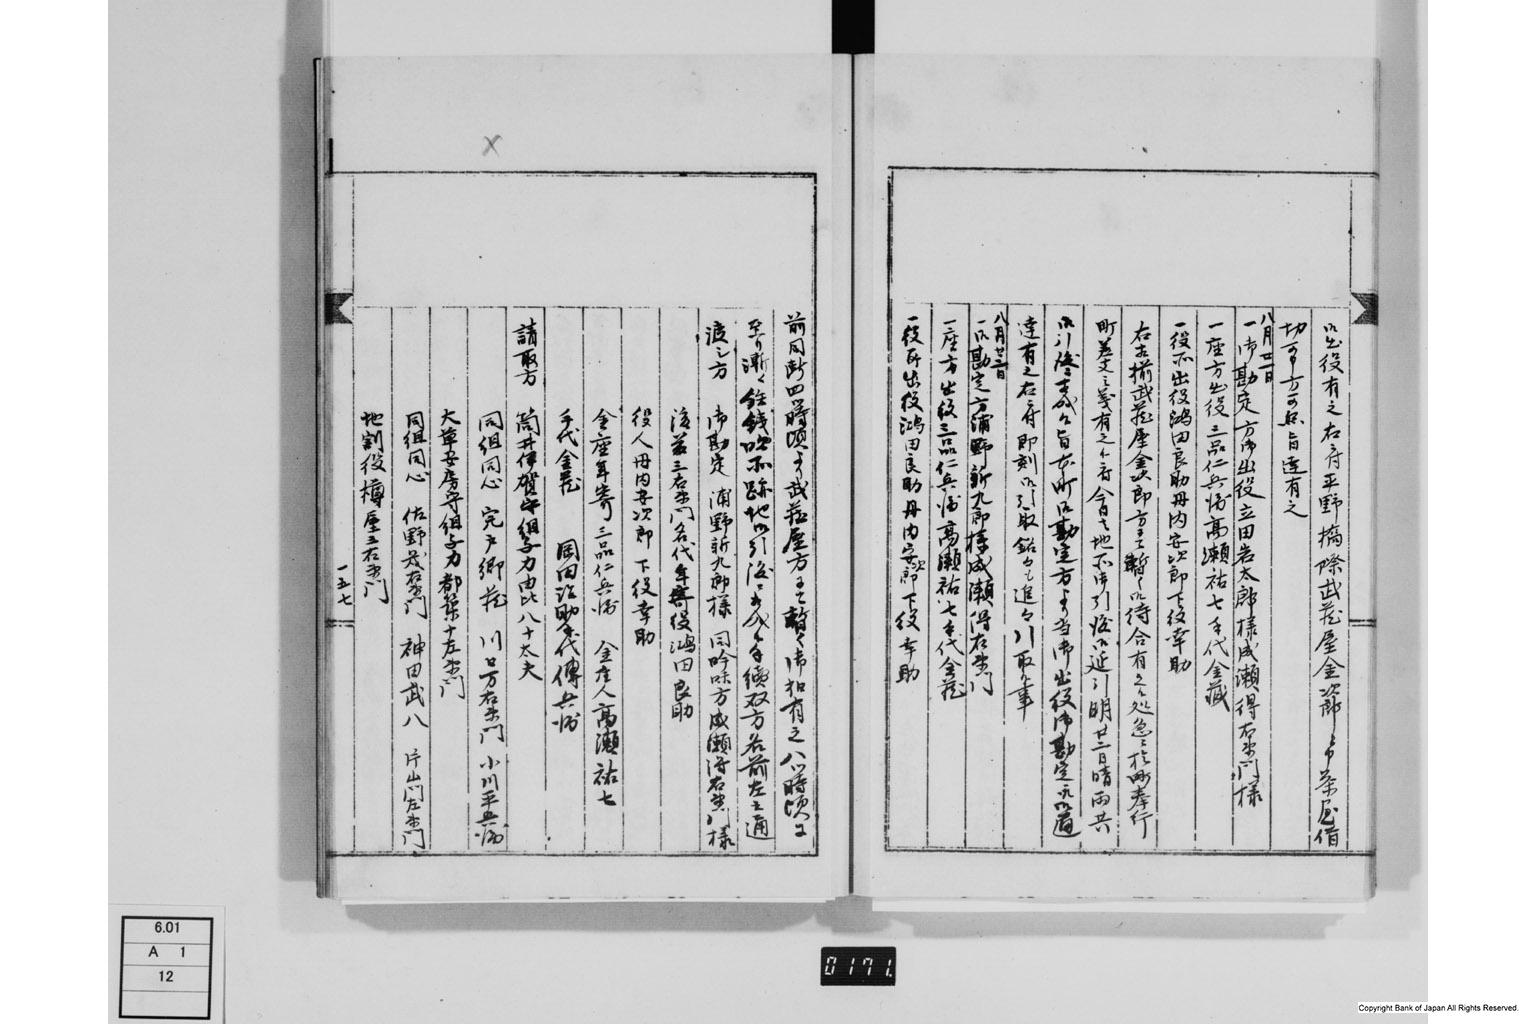 御出役有之右ニ付平野橋際武蔵屋金次郎と申茶屋借
切可申方可然旨達有之
八月廿一日
一御勘定方御出役立田岩太郎様成瀬得右衛門様
一座方出役三品仁兵衛高瀬祐七手代金蔵
一役所出役鴻田良助丹内安次郎下役幸助
右古揃武蔵屋金次郎方ニて暫く御待合有之候処急ニ於町奉行
町差支之筆有之候ニ付今日之地所御引渡御延引明廿二日晴雨共
御引渡ニ相成候旨右町御勘定方より当御出役御勘定え御通
達有之右ニ付即刻御引取銘々も追々引取候事
八月廿二日
一御勘定方浦野新九郎様成瀬得右衛門
一座方出役三品仁兵衛高瀬祐七手代金蔵
一役所出役鴻田良助丹内安次郎下役幸助
前同断四時頃より武蔵屋方ニて暫く御扣有之八時頃ニ
至り漸く鉄銭吹所跡地御引渡ニ相成候手続双方名前左之通
渡し方 御勘定 浦野新九郎様 同吟味方成瀬得右衛門様
後藤三右衛門名代年寄役鴻田良助
役人丹内安次郎 下役幸助
金座年寄三品仁兵衛 金座人高瀬祐七
手代金蔵 岡田治助手代傳兵衛
請取方 筒井伊賀守組与力由比八十太夫
同組同心 宍戸郷蔵 川口万右衛門 小川平兵衛
大草安房守組与力都築十左衛門
同組同心 佐野茂右衛門 神田武八 片山門左衛門
地割役樽屋三右衛門
一五七
6.01
A 1
12
0171.
Copyright Bank of Japan All Rights Reserved.